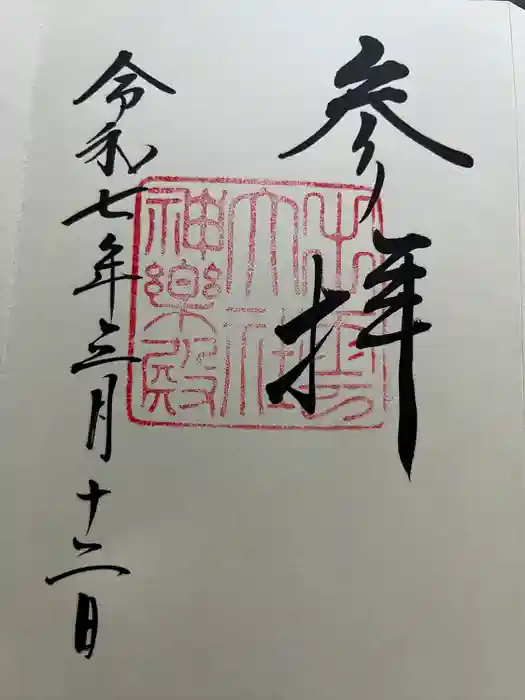 参拝
出雲
大社
神樂殿
令和七年六月十二日